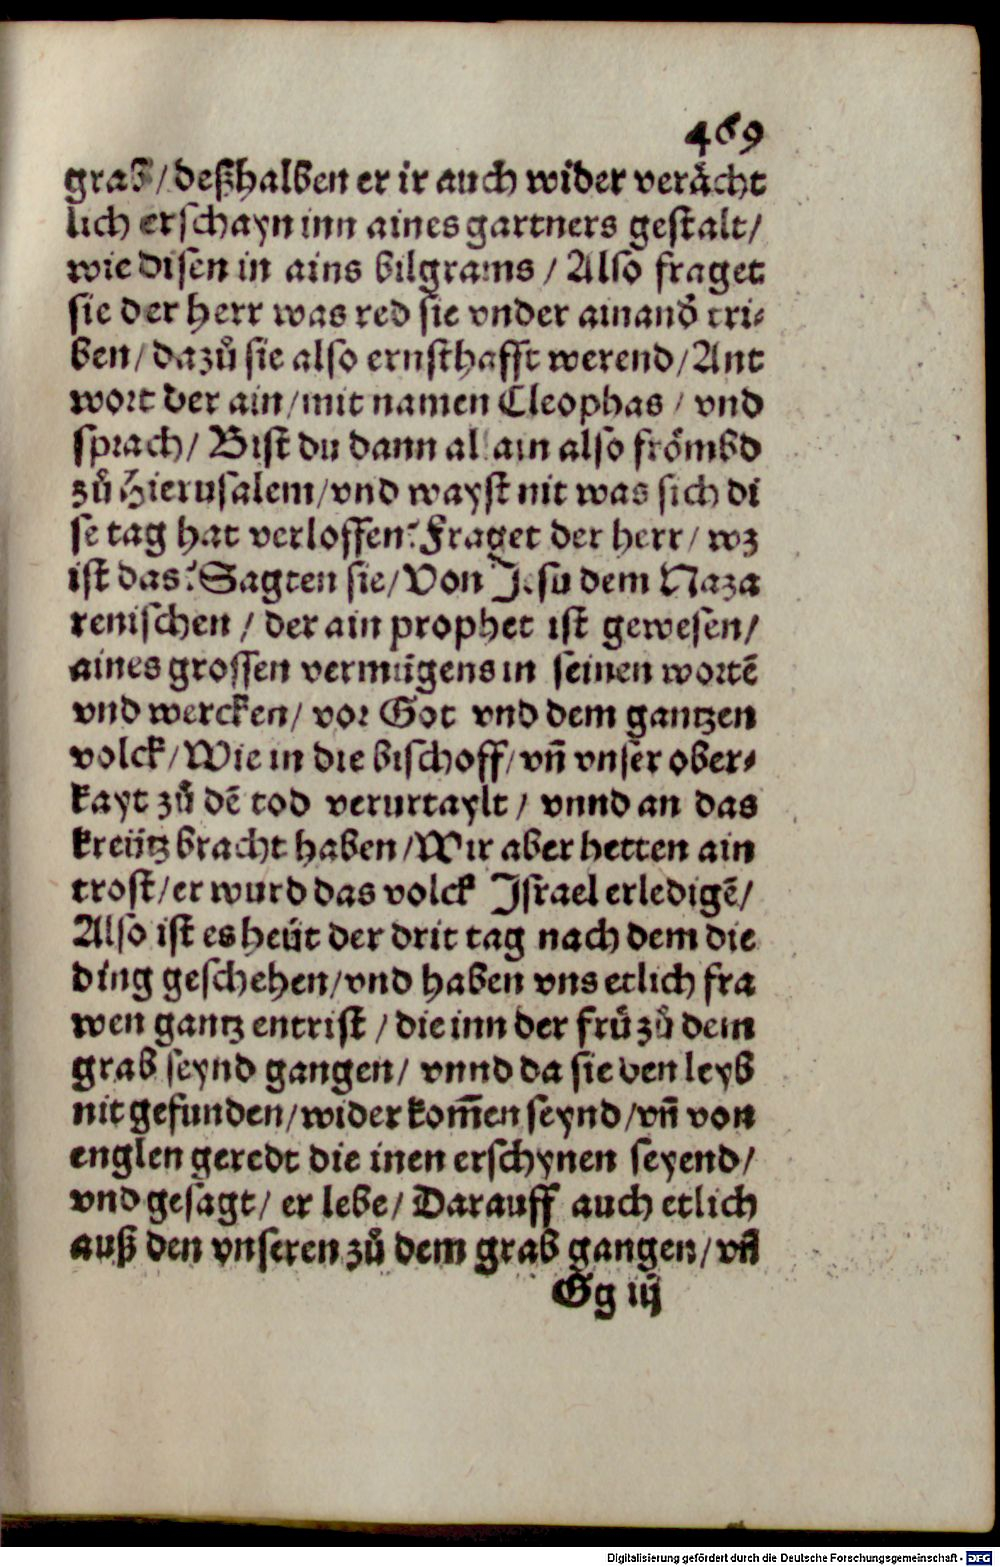 469
grab / deßhalben er ir auch wider verächt
lich erschayn inn aines gartners gestalt /
wie disen in ains bilgrams / Also fraget
sie der herr was red sie vnder ainand̄ tri-
ben / dazů sie also ernsthafft werend / Ant
wort der ain / mit namen Cleophas / vnd
sprach / Bist du dann allain also frömbd
zů Hierusalem / vnd wayst nit was sich di
se tag hat verloffen? Fraget der herr / wz
ist das? Sagten sie / Von Jesu dem Naza
renischen / der ain prophet ist gewesen /
aines grossen vermügens in seinen wortē
vnd wercken / vor Got vnd dem gantzen
volck / Wie in die bischoff / vñ vnser ober-
kayt zů dē tod verurtaylt / vnnd an das
kreütz bracht haben / Wir aber hetten ain
trost / er wurd das volck Israel erledigē /
Also ist es heüt der drit tag nach dem die
ding geschehen / vnd haben vns etlich fra
wen gantz entrist / die inn der frů zů dem
grab seynd gangen / vnnd da sie den leyb
nit gefunden / wider kom̄en seynd / vñ von
englen geredt die inen erschynen seyend /
vnd gesagt / er lebe / Darauff auch etlich
auß den vnseren zů dem grab gangen / vñ
Gg iij
Digitalisierung gefördert durch die Deutsche Forschungsgemeinschaft - DFG